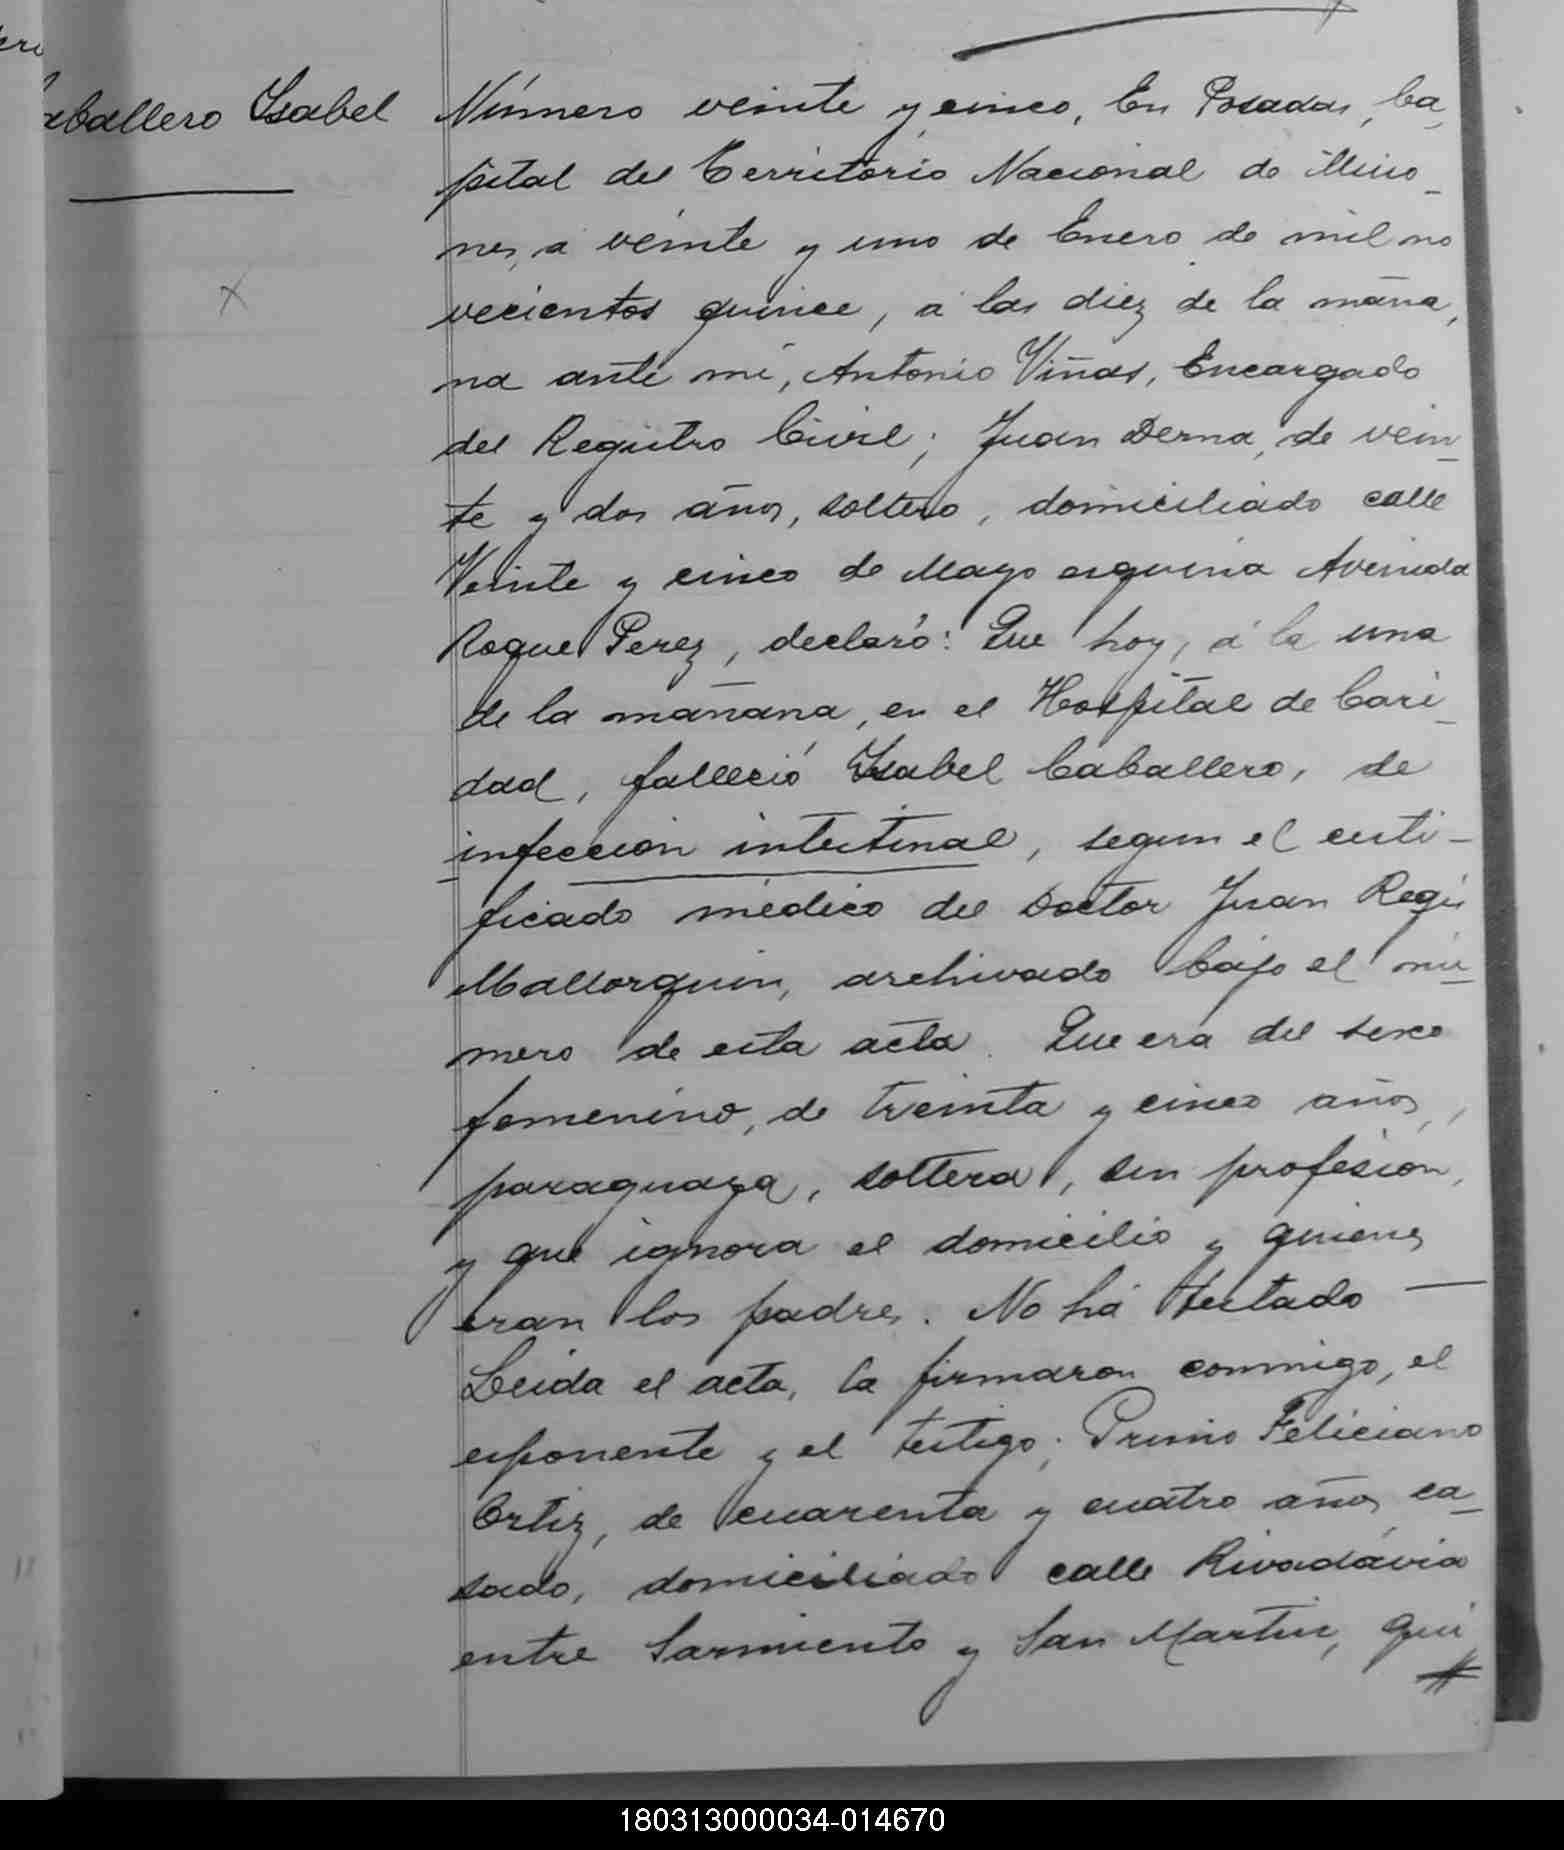 aballero Isabel
Número veinte y cinco, En Posadas, Ca_
pital del Territorio Nacional de Misio_
nes, a veinte y uno de Enero de mil no
vecientos quince, á las diez de la maña,
na ante mi, Antonio Viñas, Encargado
del Registro Civil; Juan Derna, de vein_
te y dos años, soltero, domiciliado calle
Veinte y cinco de Mayo esquina Avenida
Roque Perez, declaró: Que hoy, á la una
de la mañana, en el Hospital de Cari_
dad, falleció Isabel Caballero, de
infeccion intestinal, segun el certi-
ficado médico del Doctor Juan Regis
Mallorquin, archivado bajo el nú_
mero de esta acta. Que era del sexo
femenino, de treinta y cinco años,
paraguaya, soltera, sin profesión,
y que ignora el domicilio y quienes
eran los padres. No há testado —
Leida el acta, la firmaron conmigo, el
esponente y el testigo; Primo Feliciano
Ortiz, de cuarenta y cuatro años, ca_
sado, domiciliado calle Rivadavia
entre Sarmiento y San Martin, qui
180313000034-014670